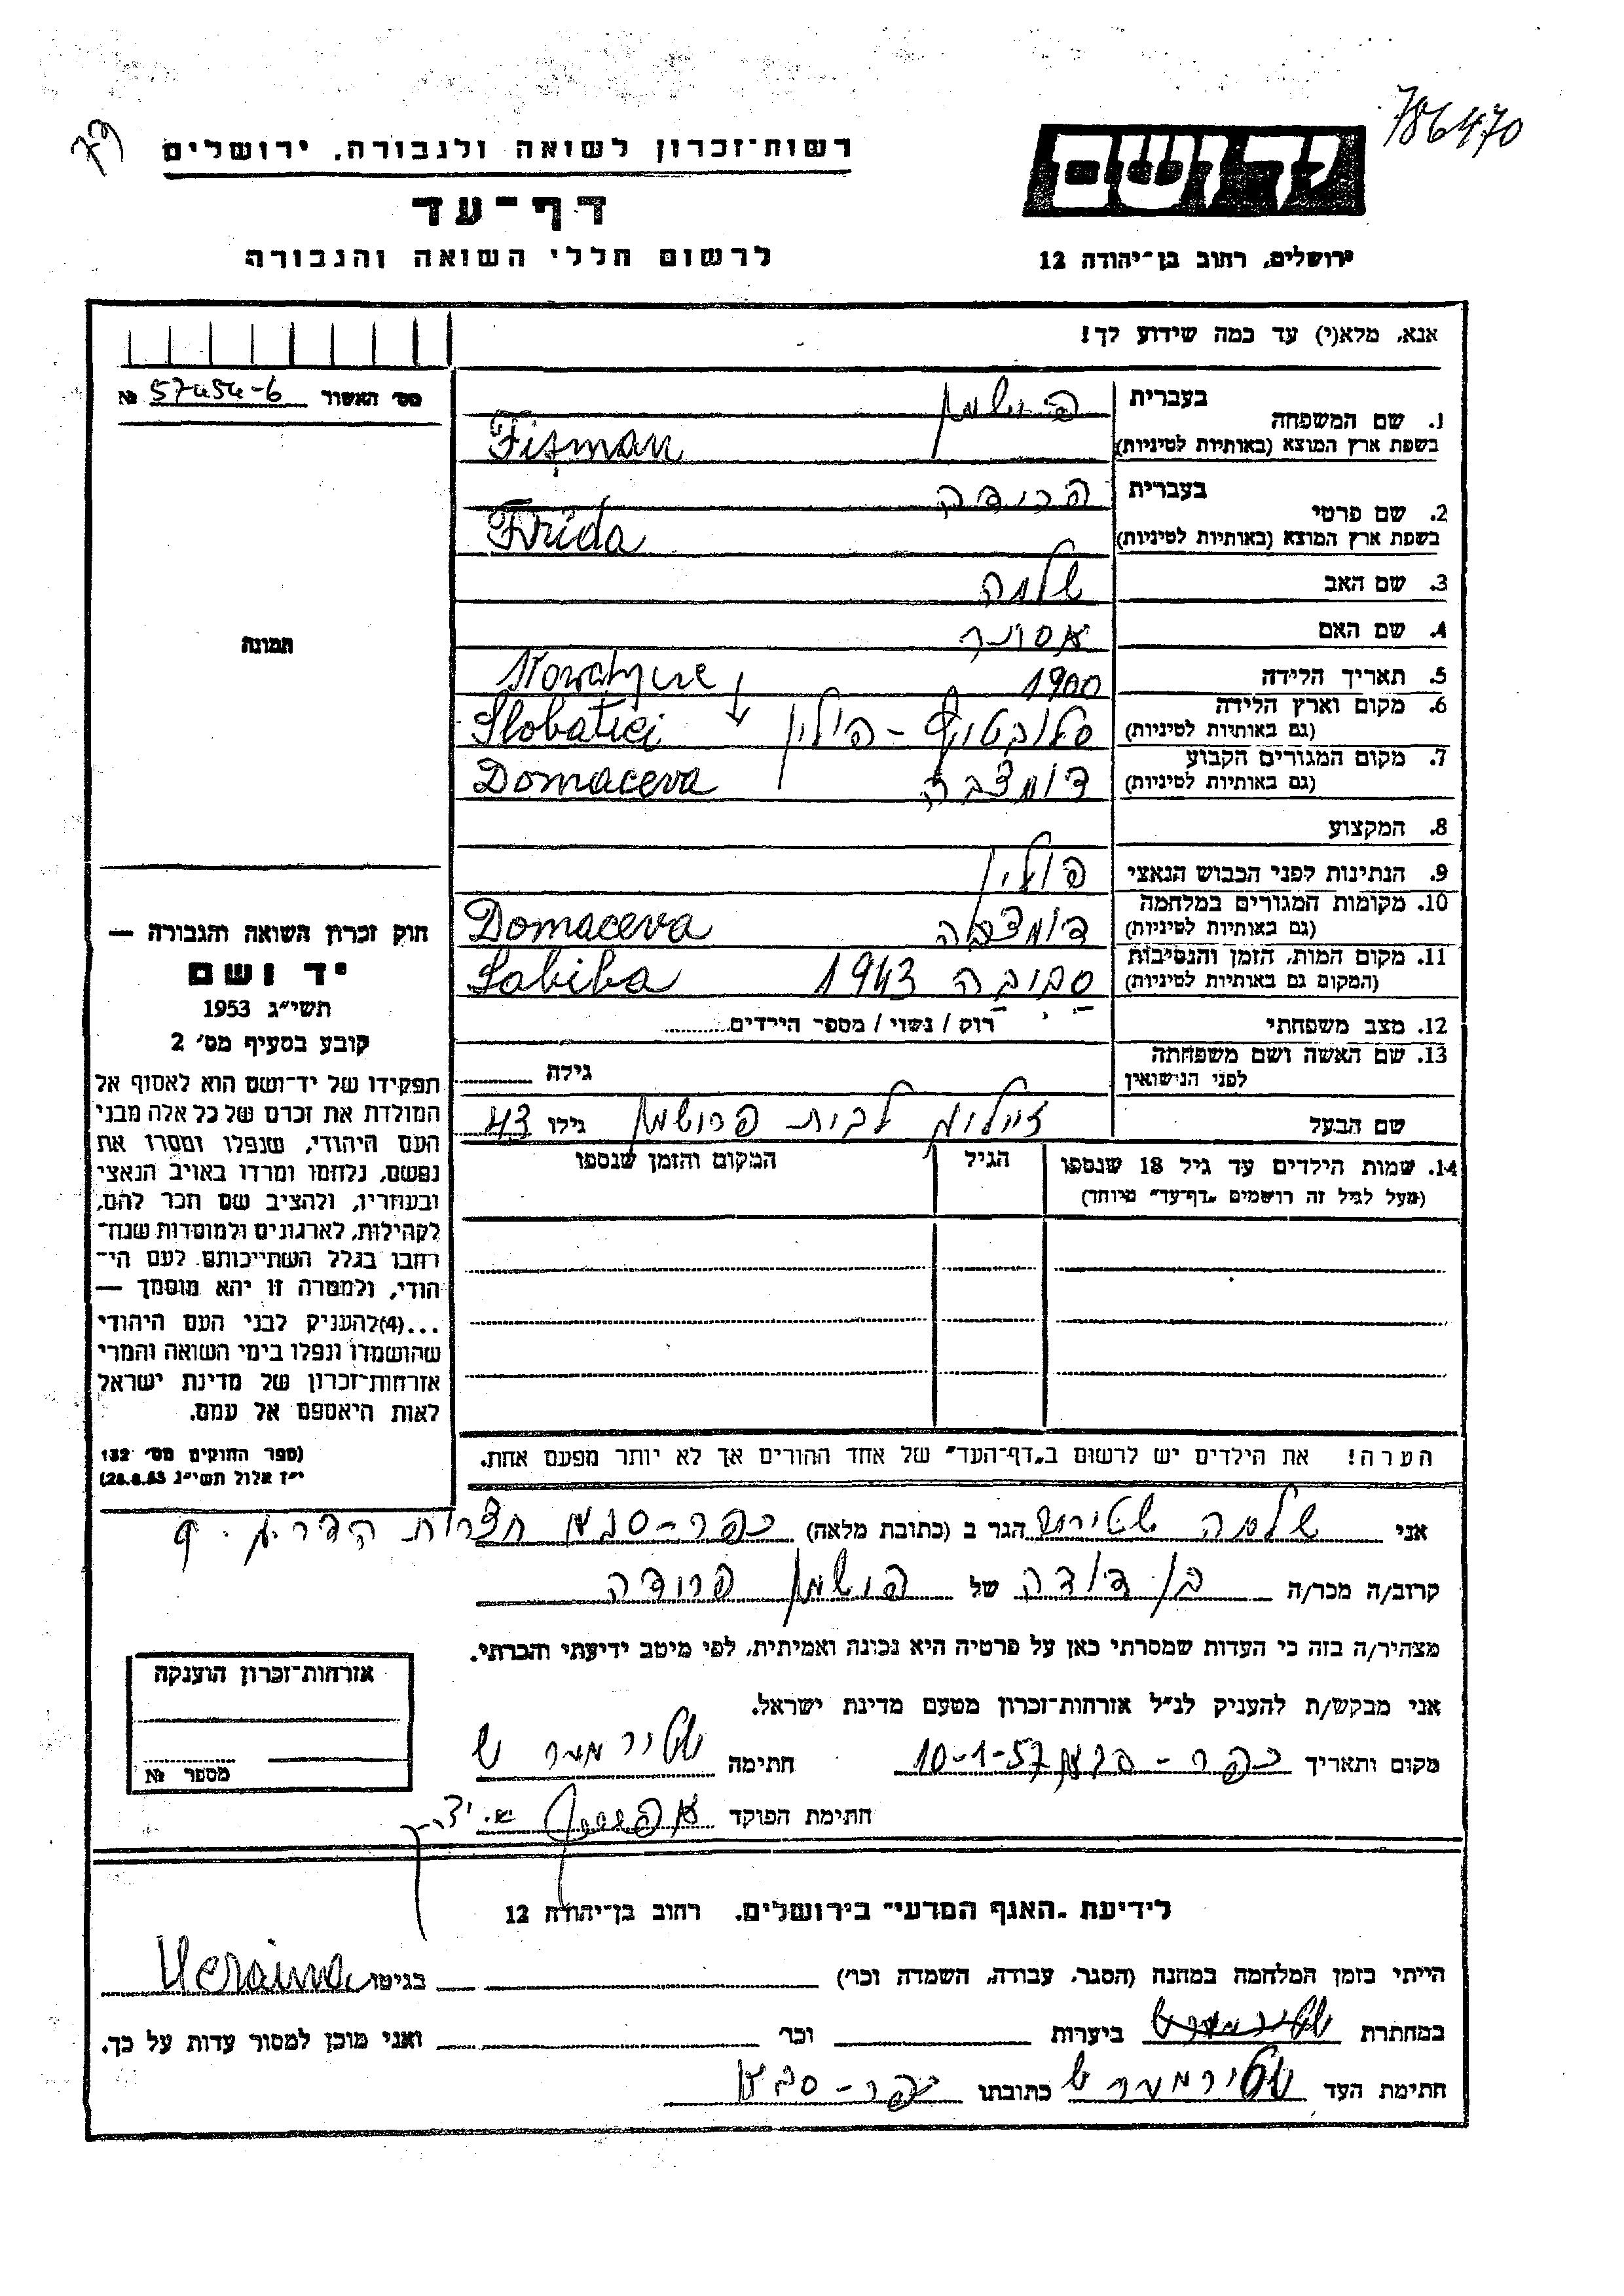 786470
79
רשות־זכרון לשואה ולגבורה, ירושלים
דף־עד
לרשום חללי השואה והגבורה
יד ושם
ירושלים, רחוב בן־יהודה 12
אנא, מלא(י) עד כמה שידוע לך!
מס׳ האשור № 57454-6
1. שם המשפחה בעברית פישמן
בשפת ארץ המוצא (באותיות לטיניות) Fişman
2. שם פרטי בעברית פרידה
בשפת ארץ המוצא (באותיות לטיניות) Frida
3. שם האב שלמה
4. שם האם אסתר
5. תאריך הלידה 1900
6. מקום וארץ הלידה (גם באותיות לטיניות) פולין Slobatici
7. מקום המגורים הקבוע (גם באותיות לטיניות) דומצבה Domaceva
8. המקצוע
9. הנתינות לפני הכבוש הנאצי פולין
10. מקומות המגורים במלחמה (גם באותיות לטיניות) דומצבה Domaceva
11. מקום המות, הזמן והנסיבות (המקום גם באותיות לטיניות) סביבה 1943 Sabiba
12. מצב משפחתי רוק / נשוי / מספר הילדים
13. שם האשה ושם משפחתה לפני הנישואין גילה
שם הבעל לבית פישמן גילו 43
14. שמות הילדים עד גיל 18 שנספו הגיל המקום והזמן שנספו
(מעל לגיל זה רושמים „דף־עד״ מיוחד)
תמונה
חוק זכרון השואה והגבורה —
יד ושם
תשי״ג 1953
קובע בסעיף מס׳ 2
תפקידו של יד־ושם הוא לאסוף אל
המולדת את זכרם של כל אלה מבני
העם היהודי, שנפלו ומסרו את
נפשם, נלחמו ומרדו באויב הנאצי
ובעוזריו, ולהציב שם וזכר להם,
לקהילות, לארגונים ולמוסדות שנח־
רחבו בגלל השתייכותם לעם הי־
הודי, ולמטרה זו יהא מוסמך —
...(4)להעניק לבני העם היהודי
שהושמדו ונפלו בימי השואה והמרי
אזרחות־זכרון של מדינת ישראל
לאות היאספם אל עמם.
(ספר החוקים מס׳ 132
י״ז אלול תשי״ג 28.8.53)
הערה! את הילדים יש לרשום ב„דף־העד״ של אחד ההורים אך לא יותר מפעם אחת.
אני שלמה הגר ב (כתובת מלאה) כפר-סבא חצרות הדר
קרוב/ה מכר/ה בן דודה של פישמן פרידה
מצהיר/ה בזה כי העדות שמסרתי כאן על פרטיה היא נכונה ואמיתית, לפי מיטב ידיעתי והכרתי.
אני מבקש/ת להעניק לנ״ל אזרחות־זכרון מטעם מדינת ישראל.
מקום ותאריך כפר-סבא 10-1-57 חתימה שטירמער ש
חתימת הפוקד
אזרחות־זכרון הוענקה
מספר №
לידיעת „האגף המדעי״ בירושלים, רחוב בן־יהודה 12
הייתי בזמן המלחמה במחנה (הסגר, עבודה, השמדה וכו׳) בגיטו Ucraina
במחתרת ביערות וכו׳ ואני מוכן למסור עדות על כך.
חתימת העד שטירמער ש כתובתו כפר-סבא